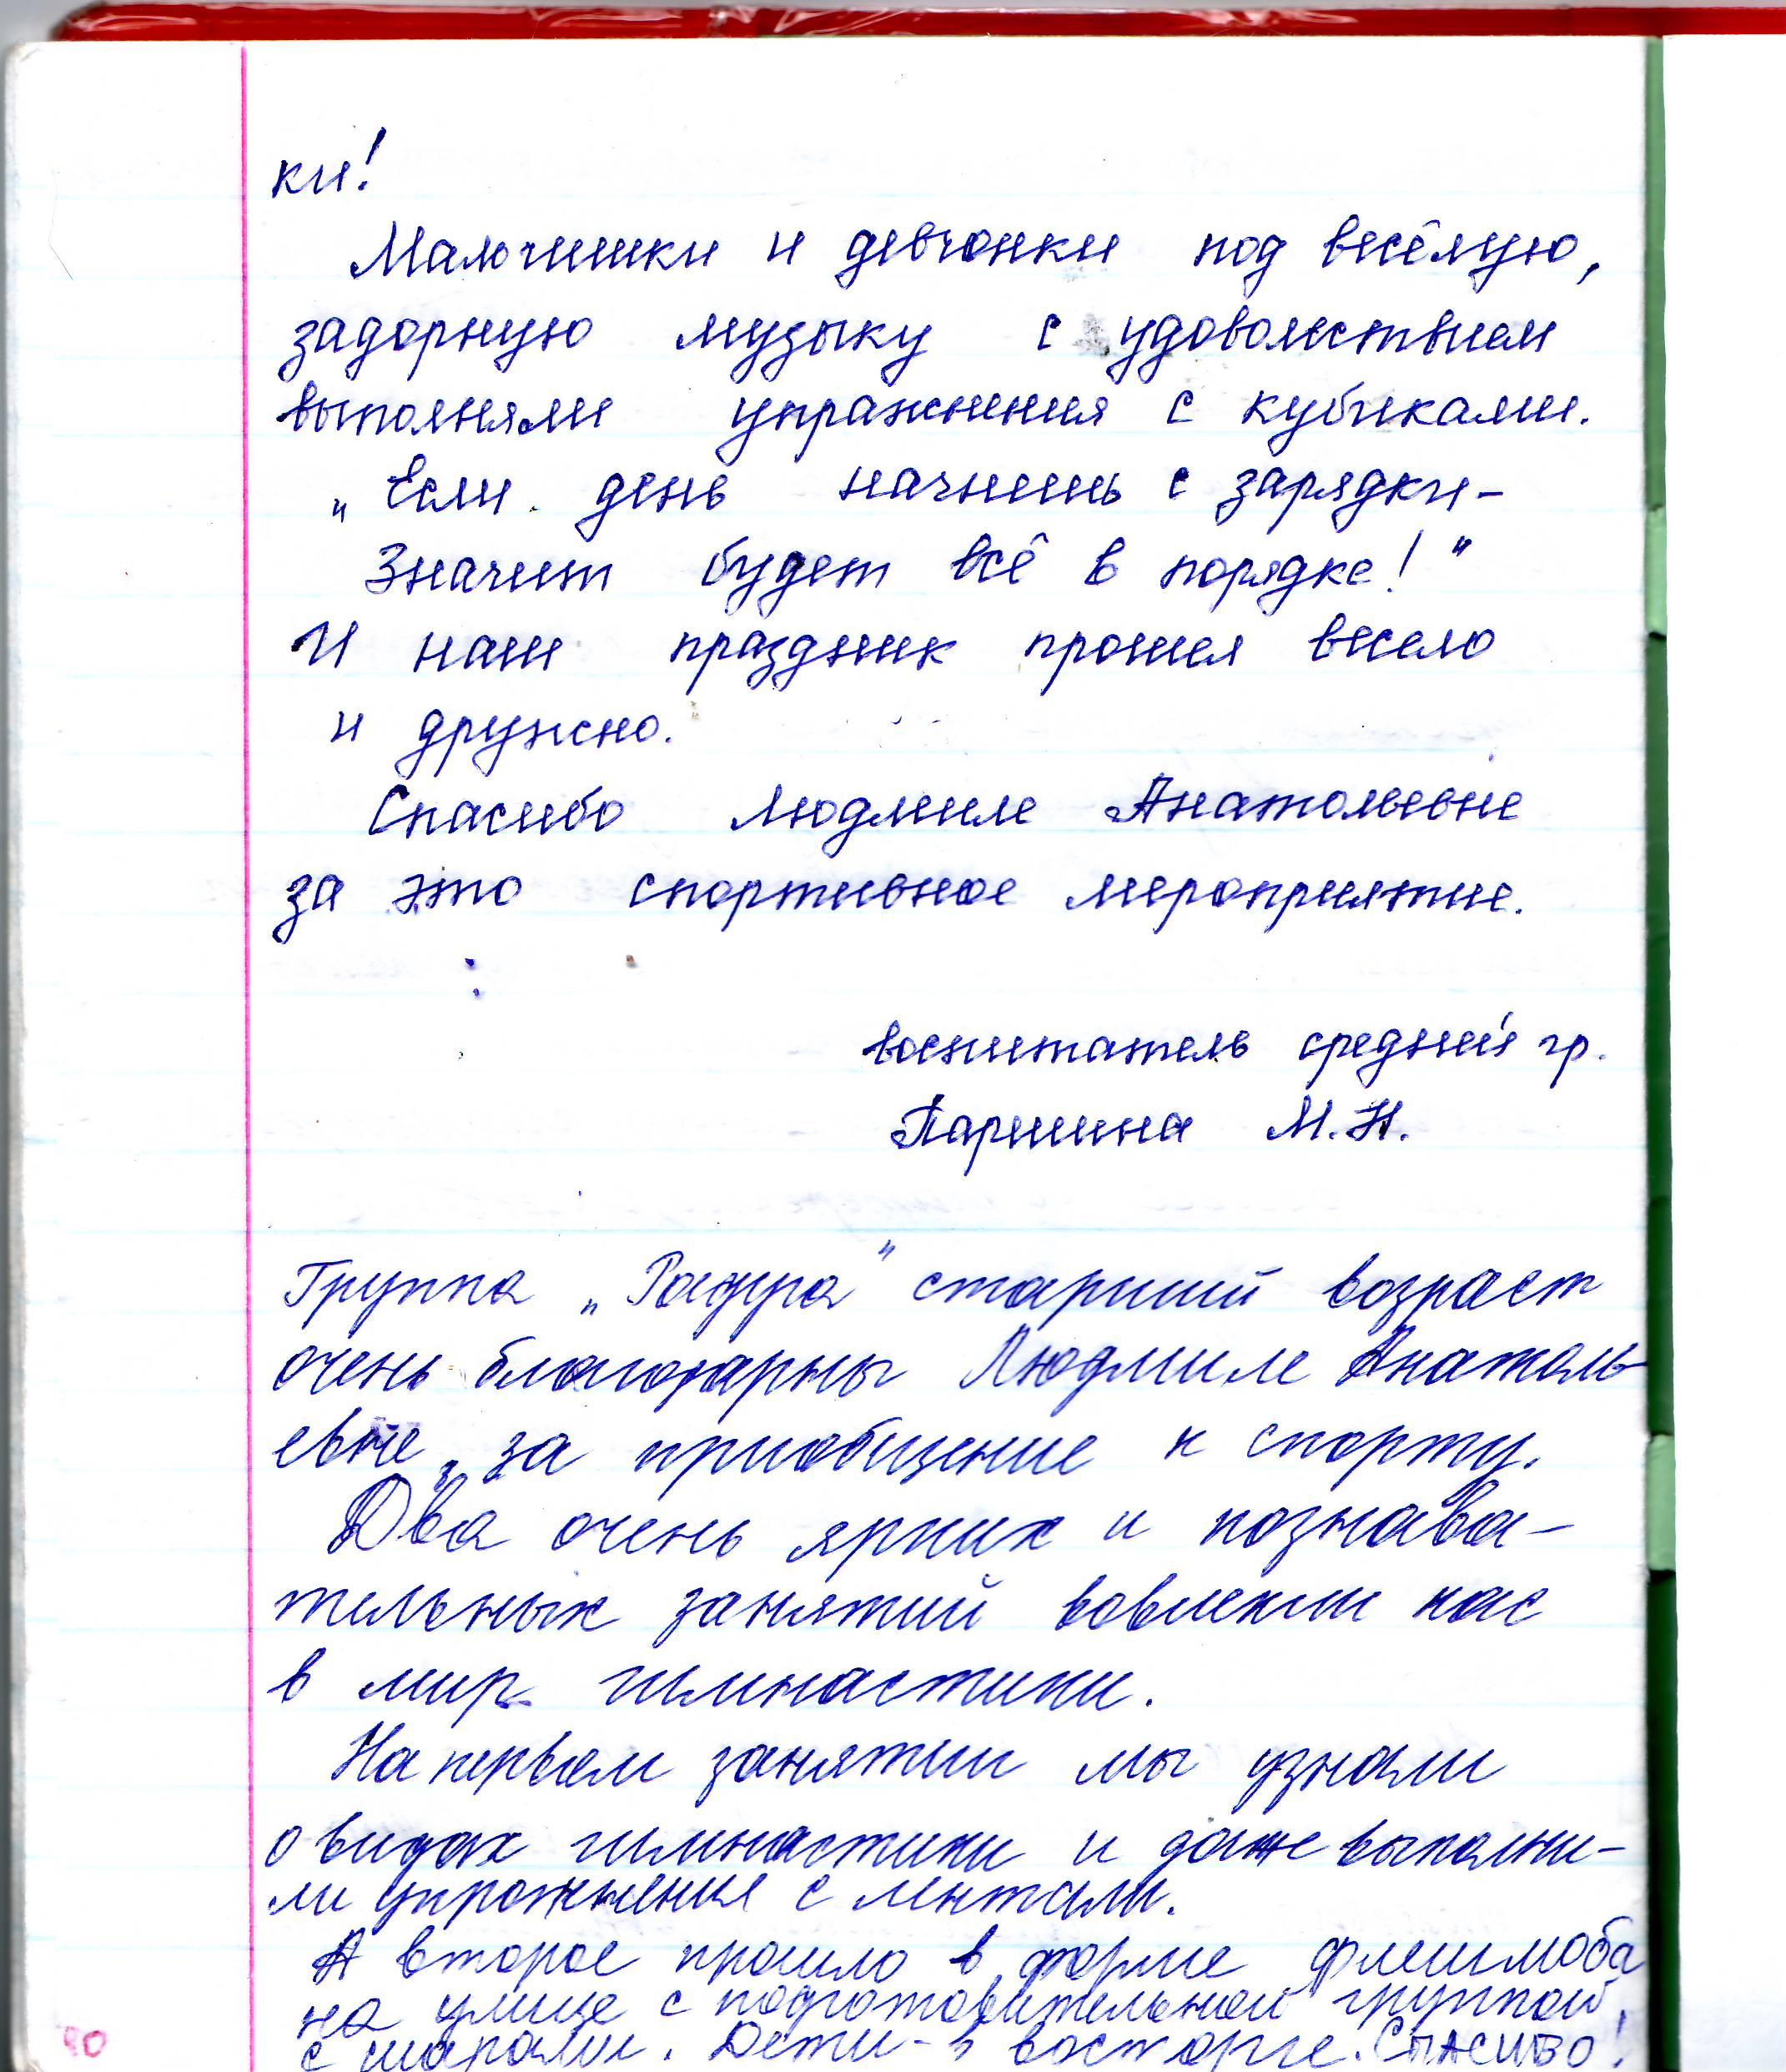 ки!
Мальчишки и девчонки под весёлую,
задорную музыку с удовольствием
выполняли упражнения с кубиками.
„Если день начнешь с зарядки-
Значит будет всё в порядке!"
И наш праздник прошел весело
и дружно.
Спасибо Людмиле Анатольевне
за это спортивное мероприятие.
воспитатель средней гр.
Паршина М.Н.
Группа „Радуга" старший возраст
очень благодарны Людмиле Анатоль-
евне за приобщение к спорту.
Два очень ярких и познава-
тельных занятий вовлекли нас
в мир гимнастики.
На первом занятии мы узнали
о видах гимнастики и даже выполни-
ли упражнения с лентами.
А второе прошло в форме флешмоба
на улице с подготовительной группой,
с шарами. Дети - в восторге. Спасибо!
90